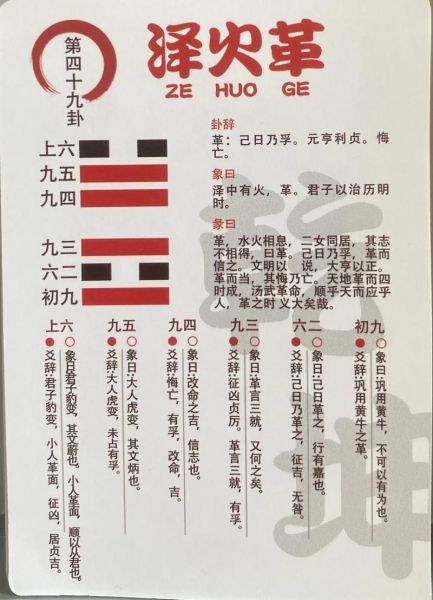 第四十九卦
泽火革
ZE HUO GE
上六
九五
九四
九三
六二
初九
卦辞
革：己日乃孚。元亨利贞。悔
亡。
象曰
泽中有火，革。君子以治历明
时。
彖曰
革，水火相息，二女同居，其志
不相得，曰革。己日乃孚，革而
信之。文明以 说，大亨以正。
革而当，其悔乃亡。天地革而四
时成，汤武革命，顺乎天而应乎
人，革之时 义大矣哉。
初九
象曰:巩用黄牛，不可以有为也。
爻辞:巩用黄牛之革。
六二
象日:己日革之，行有嘉也。
爻辞:己日乃革之，征吉，无咎。
九三
象日:革言三就，又何之矣。
爻辞:征凶贞厉。革言三就，有孚。
九四
象日:改命之吉，信志也。
爻辞:悔亡，有孚，改命，吉。
九五
象日:大人虎变，其文炳也。
爻辞:大人虎变，未占有孚。
上六
象日君子豹变，其文蔚也。小人革面，顺以从君也。
爻辞:君子豹变，小人革面，征凶，居贞吉。
乾
坤